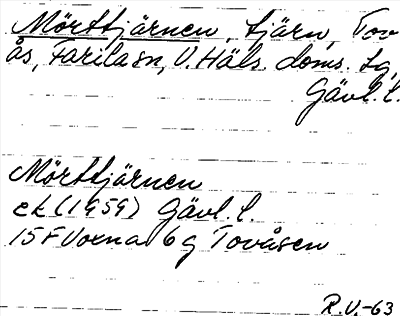 Mörttjärnen, tjärn, Tov
ås, Färila sn, V. Häls. doms. sg,
Gävl. l.
Mörttjärnen
ek (1959) Gävl. l.
15F Voxna 6g Tovåsen
R.V.-63